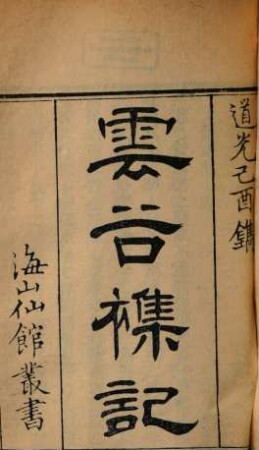 道光己酉鐫
雲谷襍記
海山仙館叢書